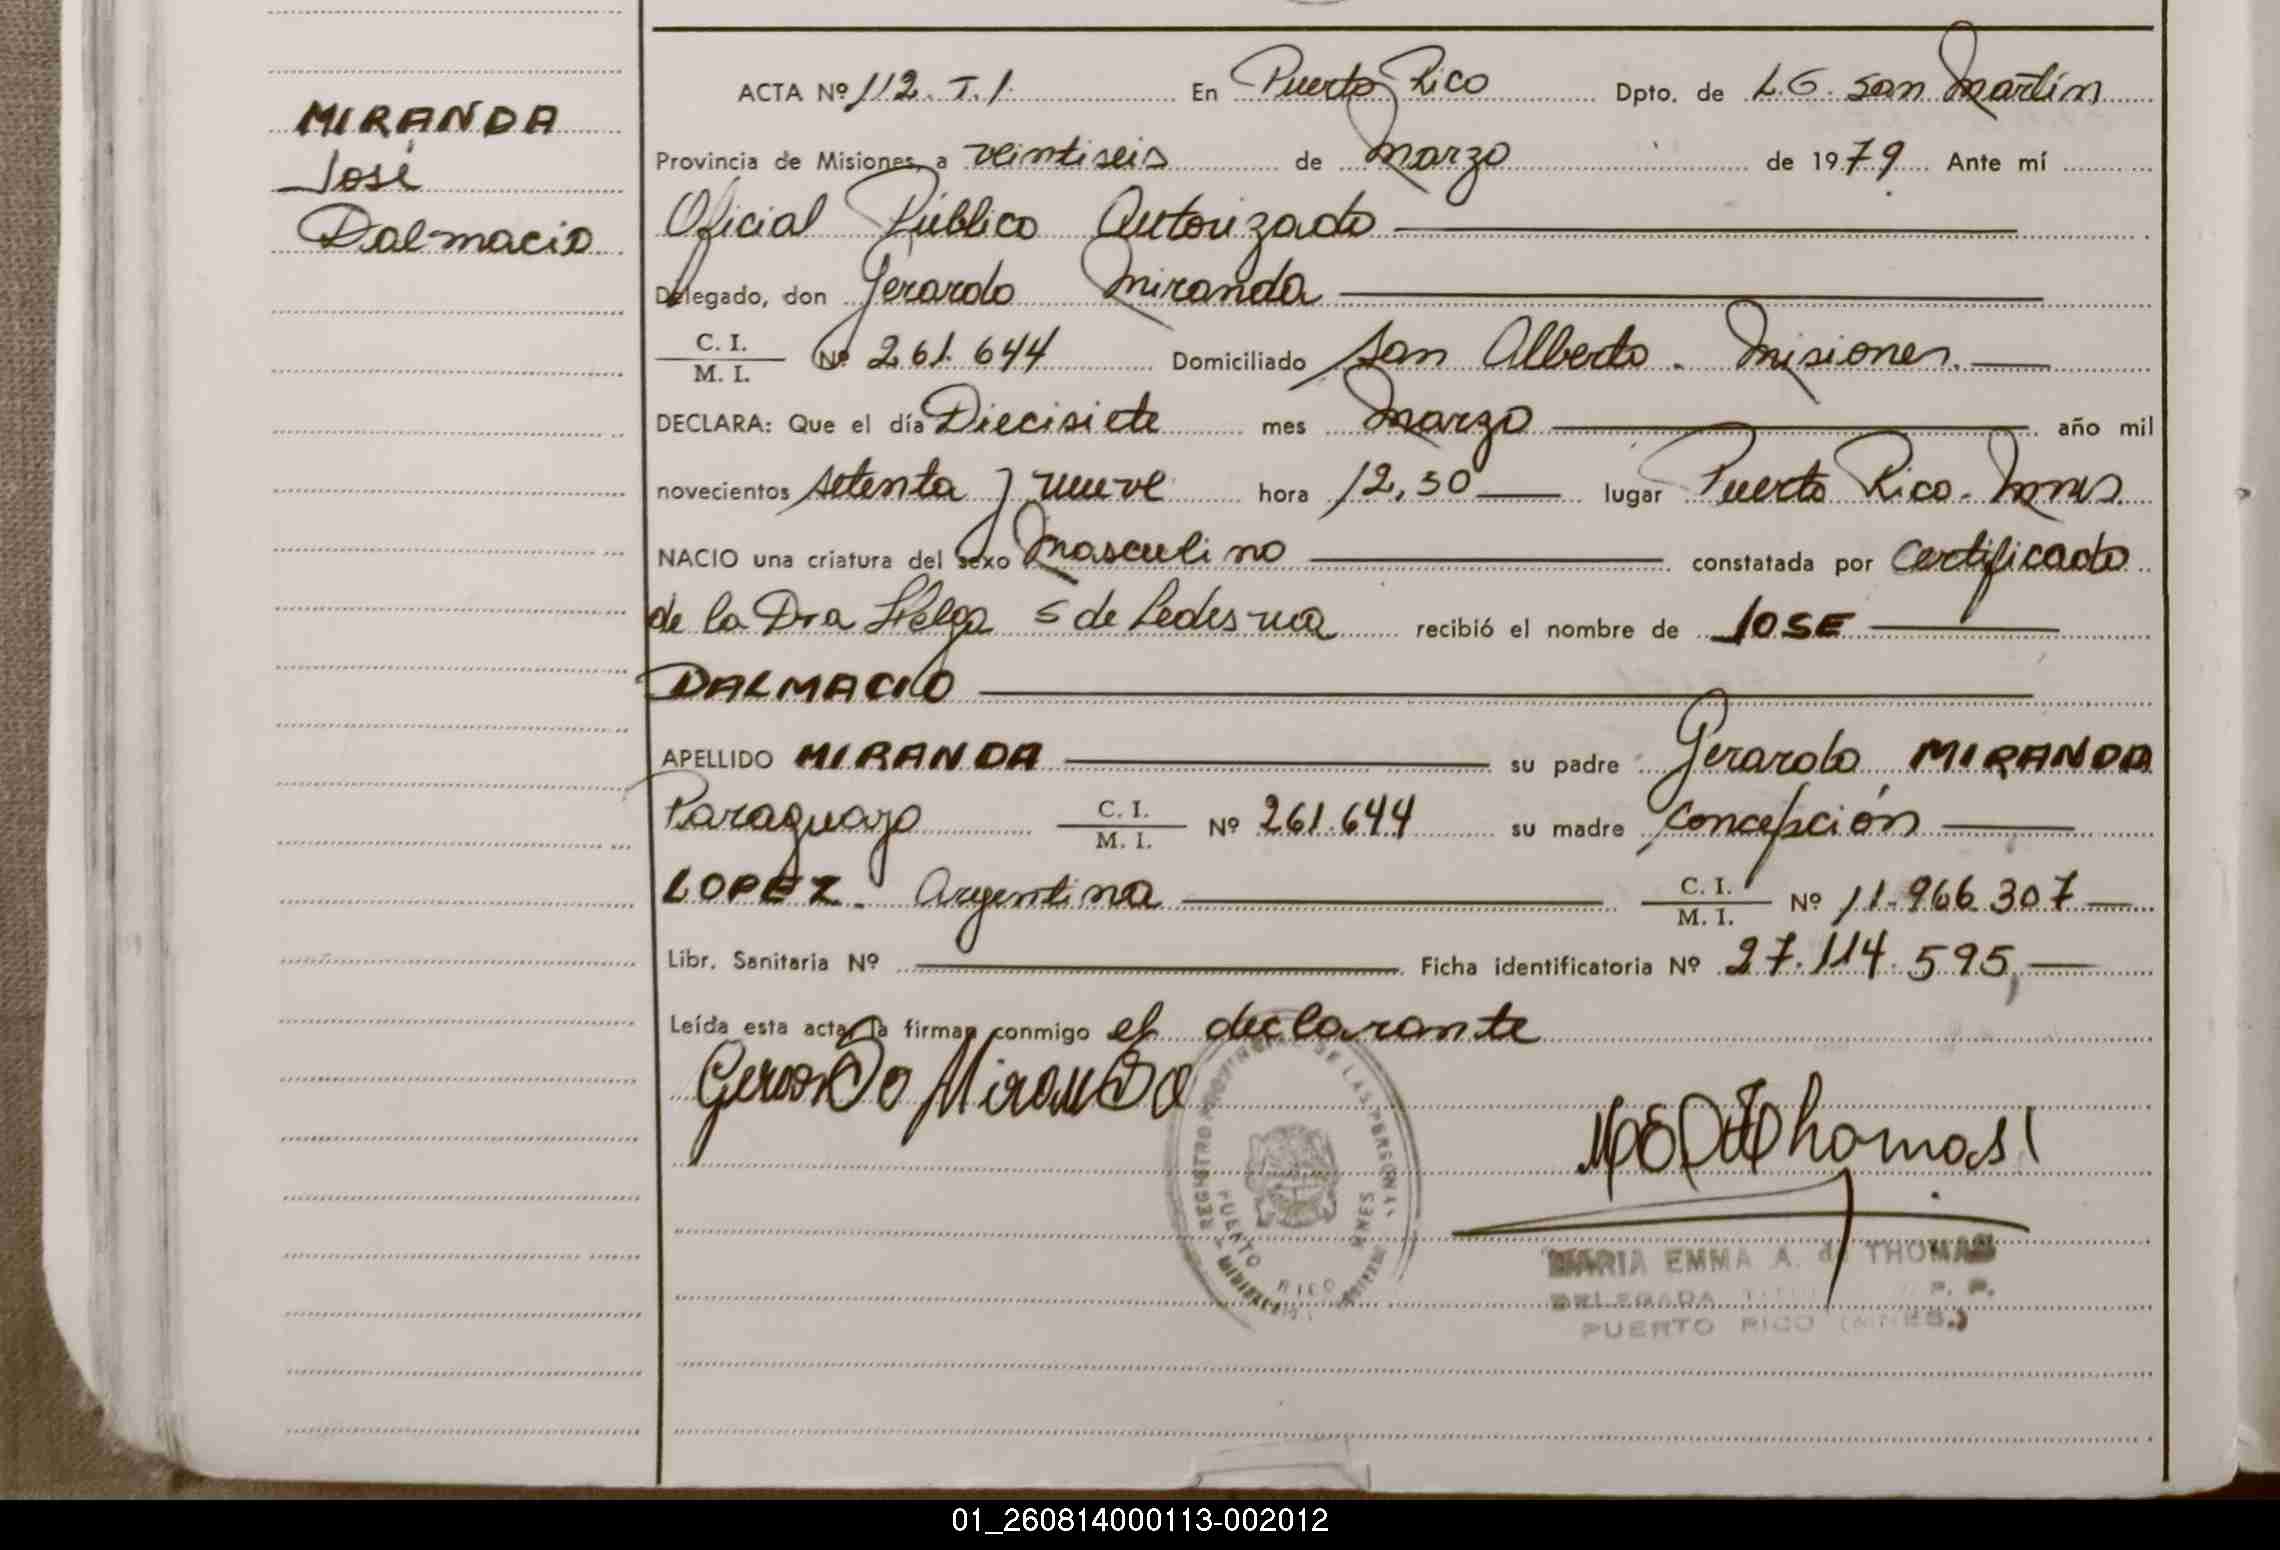 MIRANDA
José
Dalmacio
ACTA Nº 112. T. 1. En Puerto Rico Dpto. de L. G. San Martín
Provincia de Misiones, a veintiseis de Marzo de 1979 Ante mí
Oficial Público Autorizado
Delegado, don Gerardo Miranda
C. I.
M. I.
Nº 261.644 Domiciliado San Alberto. Misiones.
DECLARA: Que el día Diecisiete mes Marzo año mil
novecientos setenta y nueve hora 12,30 lugar Puerto Rico. Mnes.
NACIO una criatura del sexo Masculino constatada por Certificado
de la Dra Helga S de Ledesma recibió el nombre de JOSE
DALMACIO
APELLIDO MIRANDA su padre Gerardo MIRANDA
Paraguayo C. I. M. I. Nº 261.644 su madre Concepción
LOPEZ. Argentina C. I. M. I. Nº 11.966.307
Libr. Sanitaria Nº Ficha identificatoria Nº 27.114.595,
Leída esta acta, la firman conmigo el declarante
Gerardo Miranda
REGISTRO PROVINCIAL DE LAS PERSONAS
PUERTO RICO MNES
Thomas
MARIA EMMA A. de THOMAS
DELEGADA
PUERTO RICO (MNES.)
01_260814000113-002012